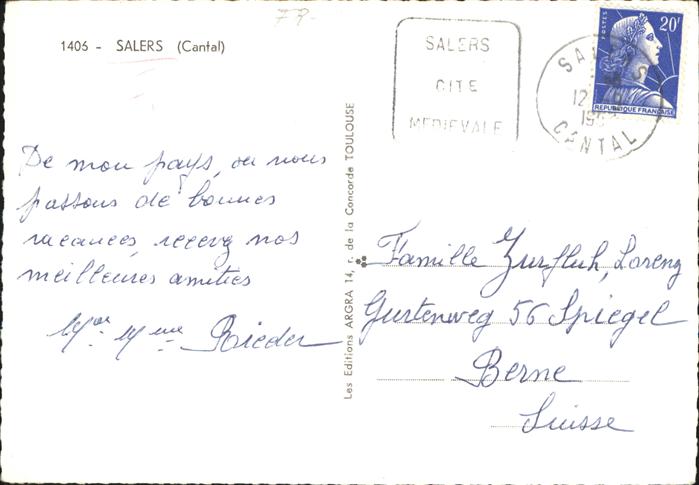 77.-
1406 - SALERS (Cantal)
SALERS
CITE
MEDIEVALE
SALERS
12
CANTAL
POSTES
20F
REPUBLIQUE FRANÇAISE
De mon pays, ou nous
passons de bonnes
vacances, recevez nos
meilleures amities
Mme Rieder
Les Editions ARGRA 14, r. de la Concorde TOULOUSE
Famille Zurfluh, Lorenz
Gurtenweg 56 Spiegel
Berne
Suisse